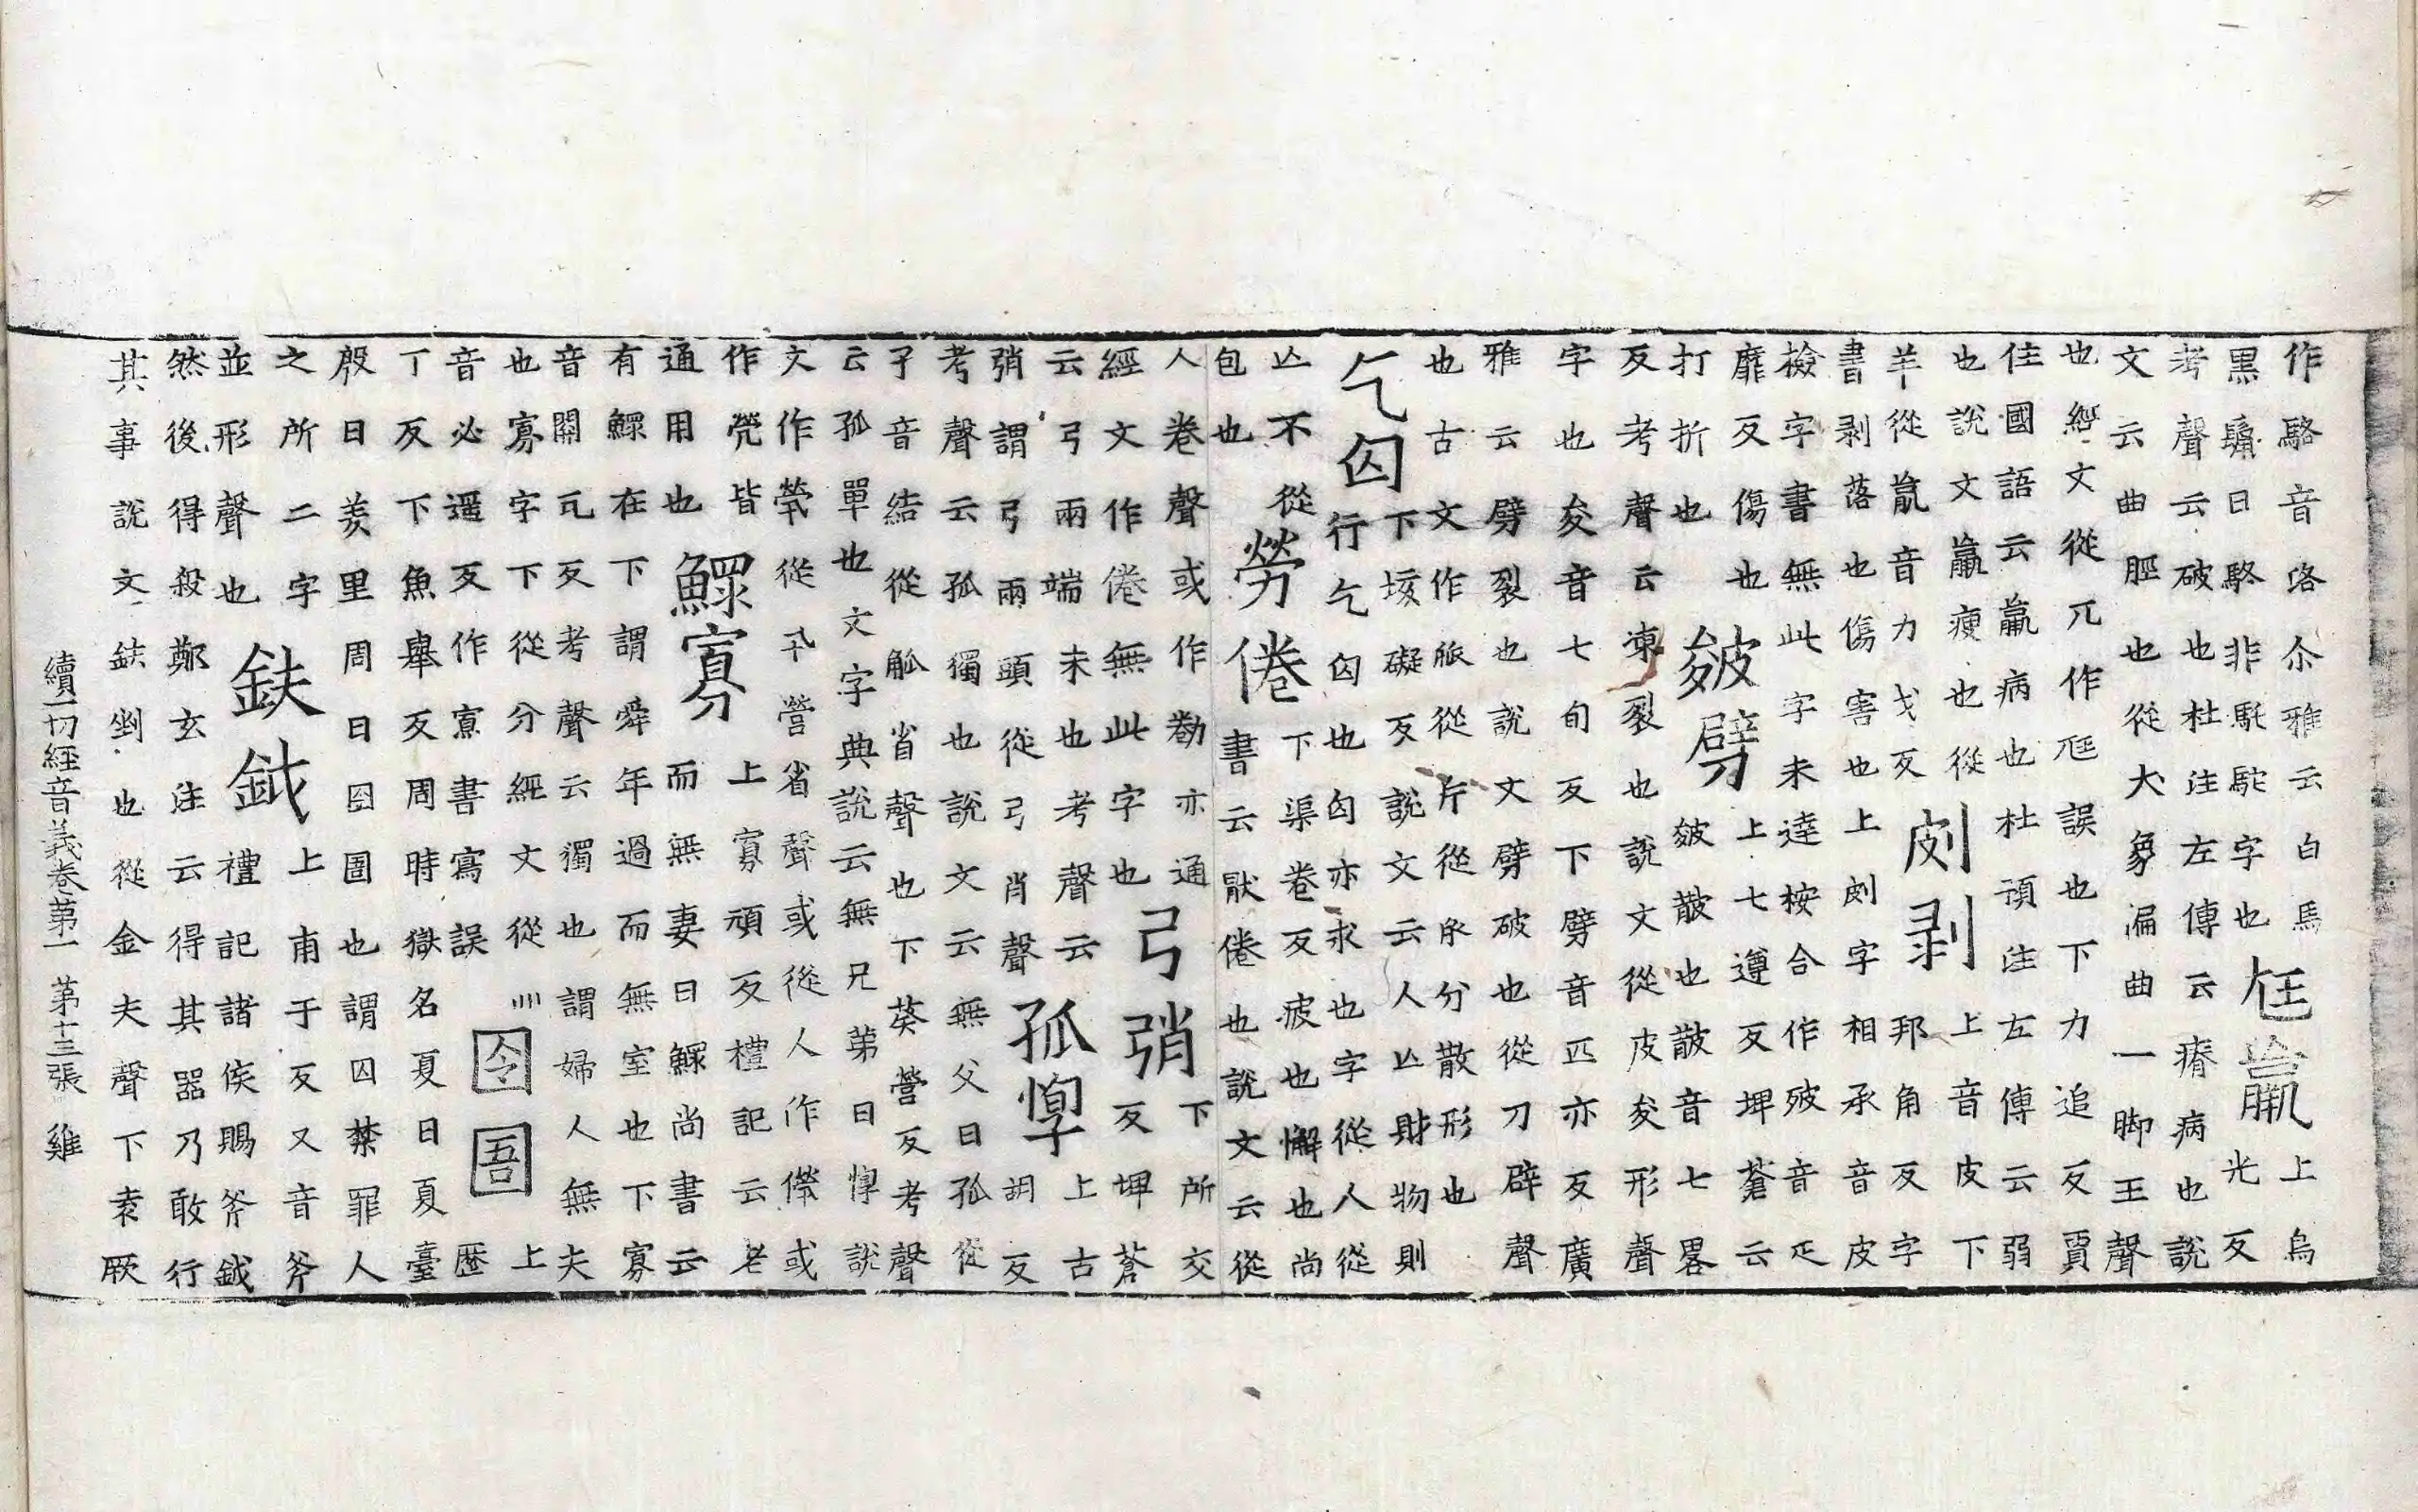 作駱音洛尒雅云白馬
黒鬛曰駱非馲駝字也
尪羸
上烏
光反
考聲云破也杜注左傳云瘠病也說
文云曲脛也從大象偏曲一脚王聲
也經文從兀作尫誤也下力追反賈
住國語云羸病也杜預注左傳云弱
也說文羸瘦也從
羊從𣎆音力戈反
㓟剥
上音皮下
邦角反字
書剥落也傷害也上㓟字相承音皮
檢字書無此字未達桉合作㱟音疋
靡反傷也
打折也
皴劈
上七遵反埤蒼云
皴皵也皵音七畧
反考聲云凍裂也說文從皮夋形聲
字也夋音七旬反下劈音匹亦反廣
雅云劈裂也說文劈破也從刀辟聲
也古文作𠂢從斤從𠂢分散形也
乞匃
下垓礙反說文云人亾財物則
行乞匃也匃亦求也字從人從
亾不從
包也
勞倦
下渠卷反疲也懈也尚
書云猒倦也說文云從
人卷聲或作勌亦通
經文作倦無此字也
弓弰
下所交
反埤蒼
云弓兩端末也考聲云
弰謂弓兩頭從弓肖聲
孤惸
上古
胡反
考聲云孤獨也說文云無父曰孤從
子音結從觚省聲也下葵營反考聲
云孤單也文字典說云無兄弟曰惸說
文作煢從卂營省聲或從人作㒀或
作㷀皆
通用也
鰥寡
上寡頑反禮記云老
而無妻曰鰥尚書云
有鰥在下謂舜年過而無室也下寡
音關瓦反考聲云獨也謂婦人無夫
也寡字下從分經文從灬
音必遥反作𡩋書寫誤
囹圄
上
歴
丁反下魚舉反周時獄名夏曰夏臺
殷曰羑里周曰囹圄也謂囚禁罪人
之所二字
並形聲也
鈇鉞
上甫于反又音斧
禮記諸侯賜斧鉞
然後得殺鄭玄注云得其器乃敢行
其事說文鈇剉也從金夫聲下袁厥
續一切經音義卷第一 第十三張 雞